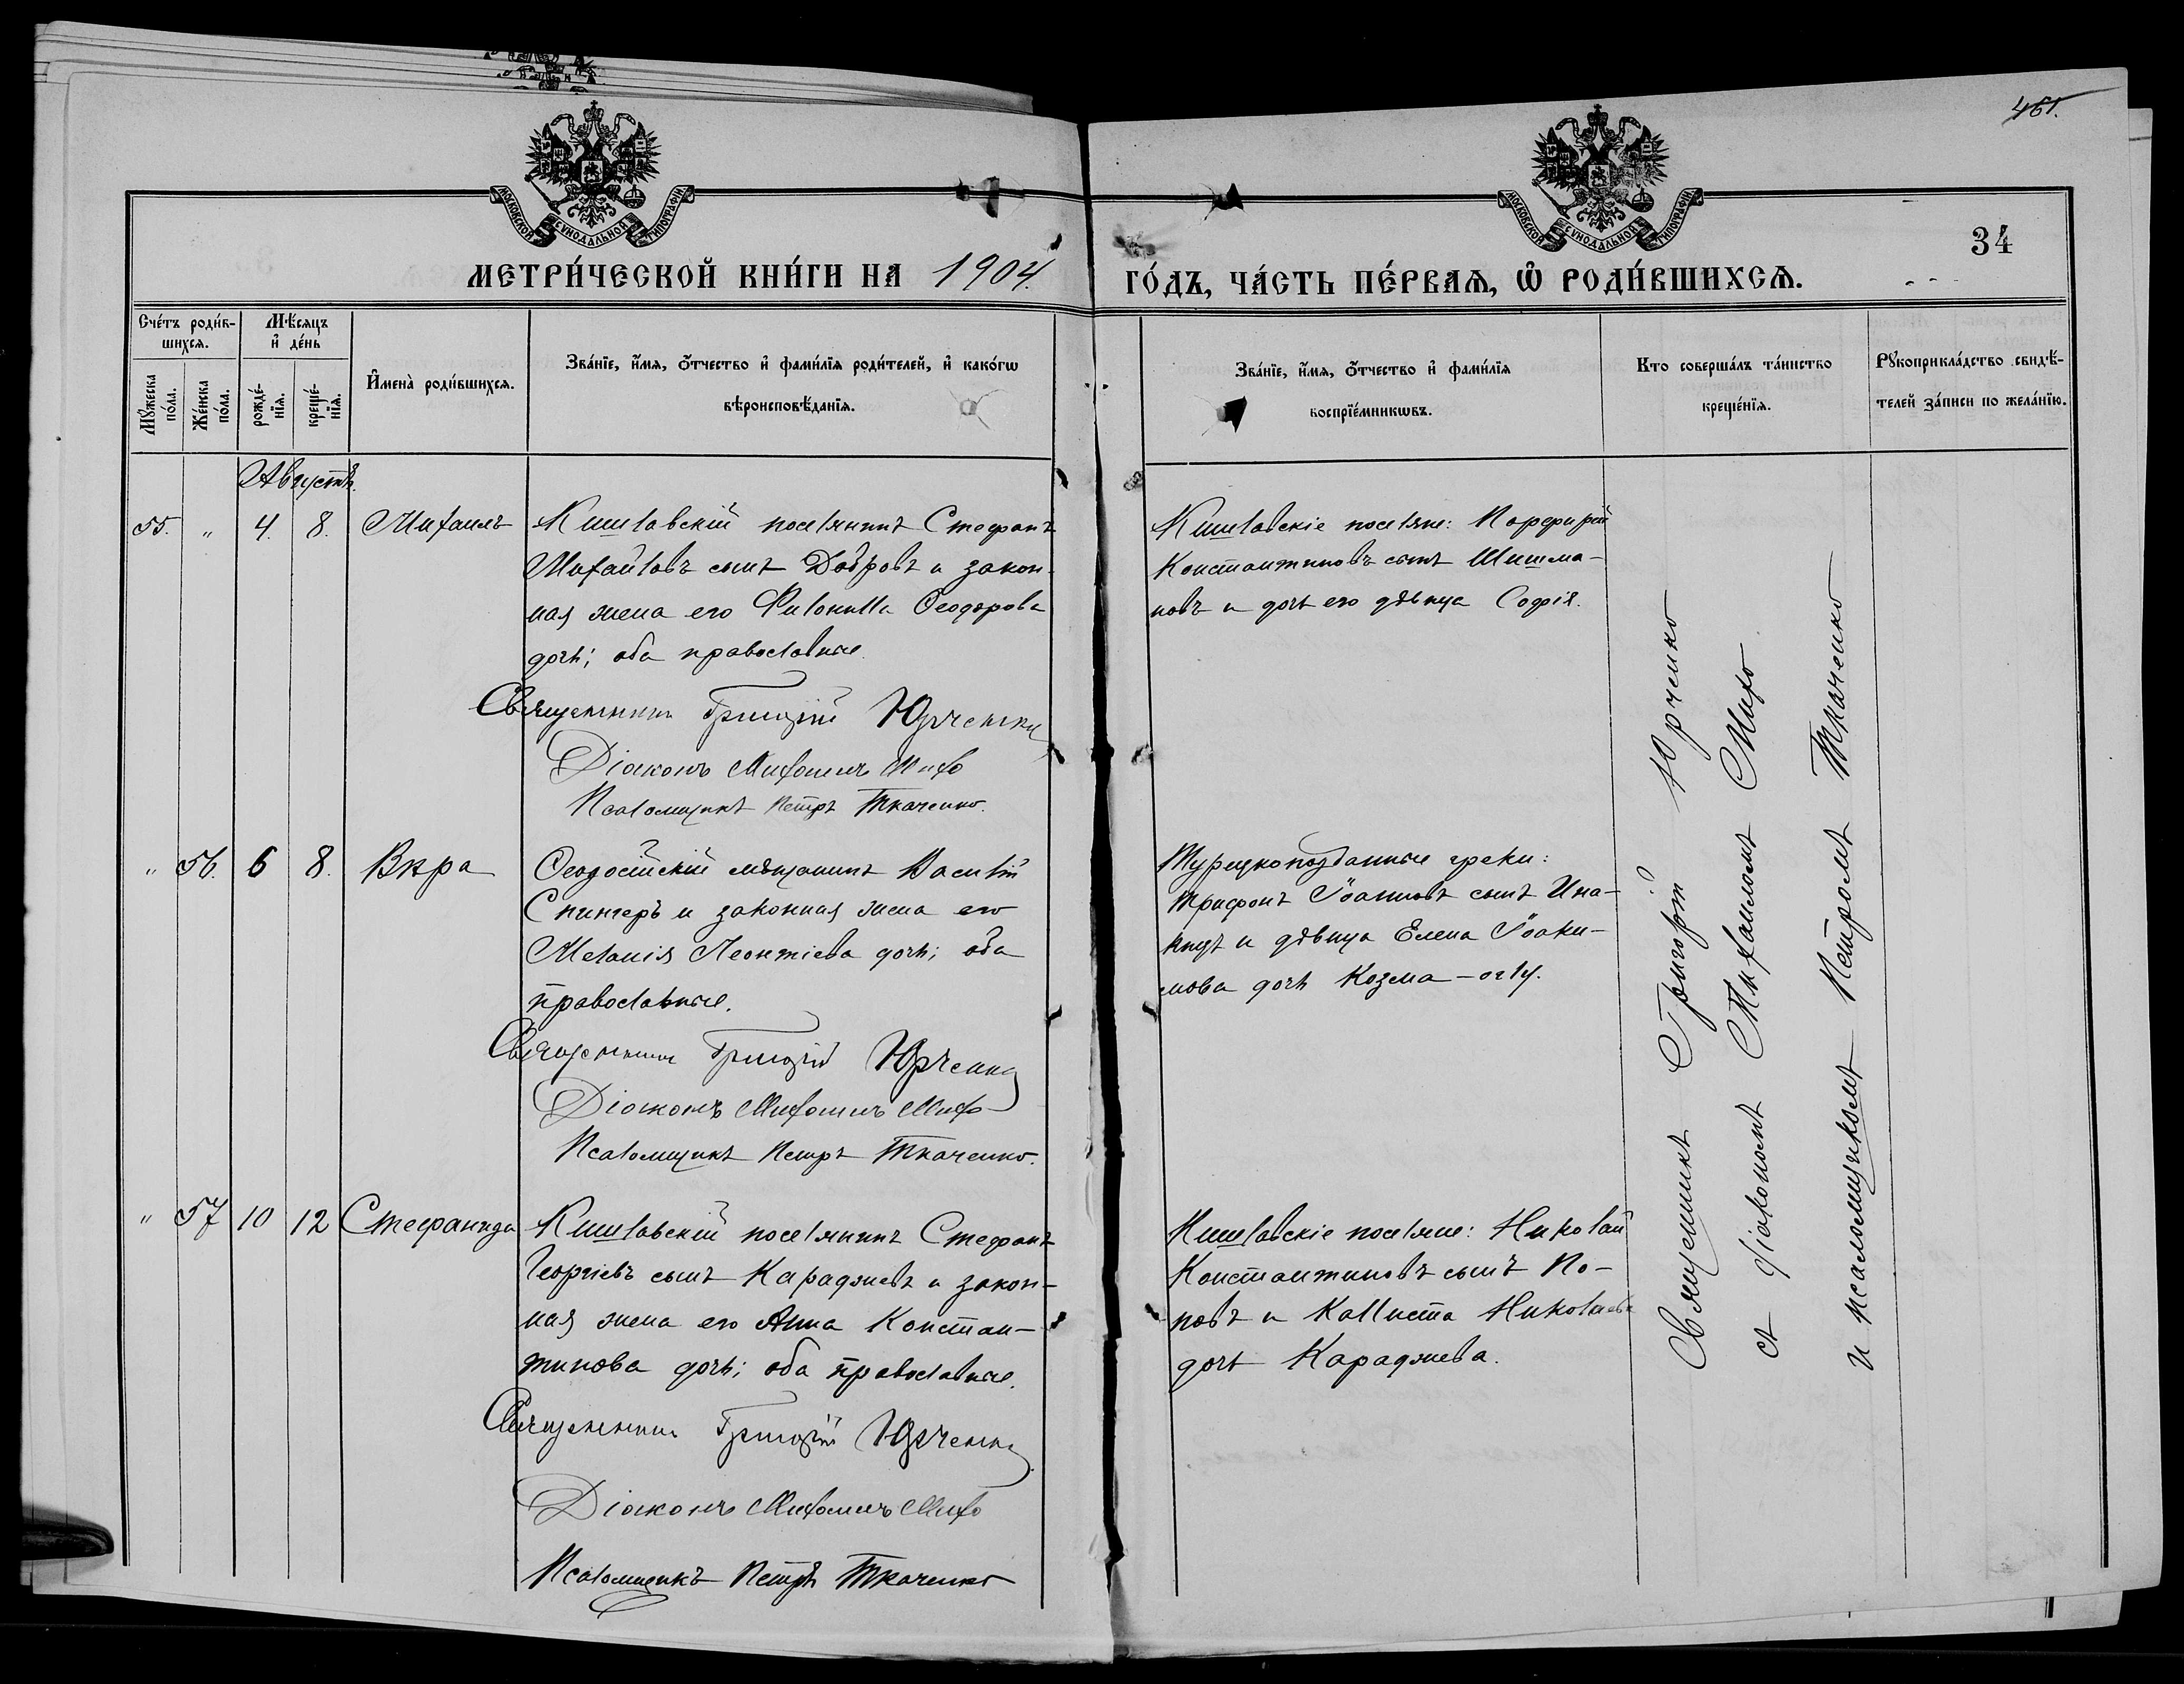 461.
МОСКОВСКОЙ СѴНОДАЛЬНОЙ ТИПОГРАФІИ
МОСКОВСКОЙ СѴНОДАЛЬНОЙ ТИПОГРАФІИ
34
МЕТРИ́ЧЕСКОЙ КНИ́ГИ НА 1904. ГО́ДЪ, ЧА́СТЬ ПЕ́РВАѦ, Ѡ҆ РОДИ́ВШИХСѦ.
Сче́тъ роди́в-
шихсѧ.
Мѣ́сѧцъ
и҆ де́нь
Мꙋ́жеска
по́ла.
Же́нска
по́ла.
рожде́-
нїѧ.
креще́-
нїѧ.
И҆мена̀ роди́вшихсѧ.
Зва́нїе, и҆́мѧ, ѻ҆́тчество и҆ фами́лїѧ роди́телей, и҆ како́гѡ
вѣроисповѣ́данїѧ.
Зва́нїе, и҆́мѧ, ѻ҆́тчество и҆ фами́лїѧ
воспрїе́мникѡвъ.
Кто соверша́лъ та́инство
креще́нїѧ.
Рꙋкоприкла́дство свидѣ́-
телей за́писи по жела́нїю.
Августъ.
55. " 4. 8. Михаилъ
Кишлавскій поселянинъ Стефанъ
Михайловъ сынъ Добровъ и закон-
ная жена его Филонилла Ѳеодорова
дочь; оба православные.
Священникъ Григорій Юрченко
Діаконъ Михаилъ Михо
Псаломщикъ Петръ Ткаченко.
Кишлавскіе поселяне: Порфирій
Константиновъ сынъ Шишма-
новъ и дочь его дѣвица Софія.
" 56. 6 8. Вѣра
Ѳеодосійскій мѣщанинъ Василій
Спингеръ и законная жена его
Меланія Леонтіева дочь; оба
православные.
Священникъ Григорій Юрченко
Діаконъ Михаилъ Михо
Псаломщикъ Петръ Ткаченко.
Турецкоподданные греки:
Трифонъ Іоанновъ сынъ
и дѣвица Елена Іоаки-
мова дочь Козма-оглу.
" 57 10 12 Стефанида
Кишлавскій поселянинъ Стефанъ
Георгіевъ сынъ Караджевъ и закон-
ная жена его Анна Констан-
тинова дочь; оба православные.
Священникъ Григорій Юрченко
Діаконъ Михаилъ Михо
Псаломщикъ Петръ Ткаченко
Кишлавскіе поселяне: Николай
Константиновъ сынъ По-
повъ и Каллиста Николаева
дочь Караджева.
Священникъ Григорій Юрченко
съ діакономъ Михаиломъ Михо
и псаломщикомъ Петромъ Ткаченко